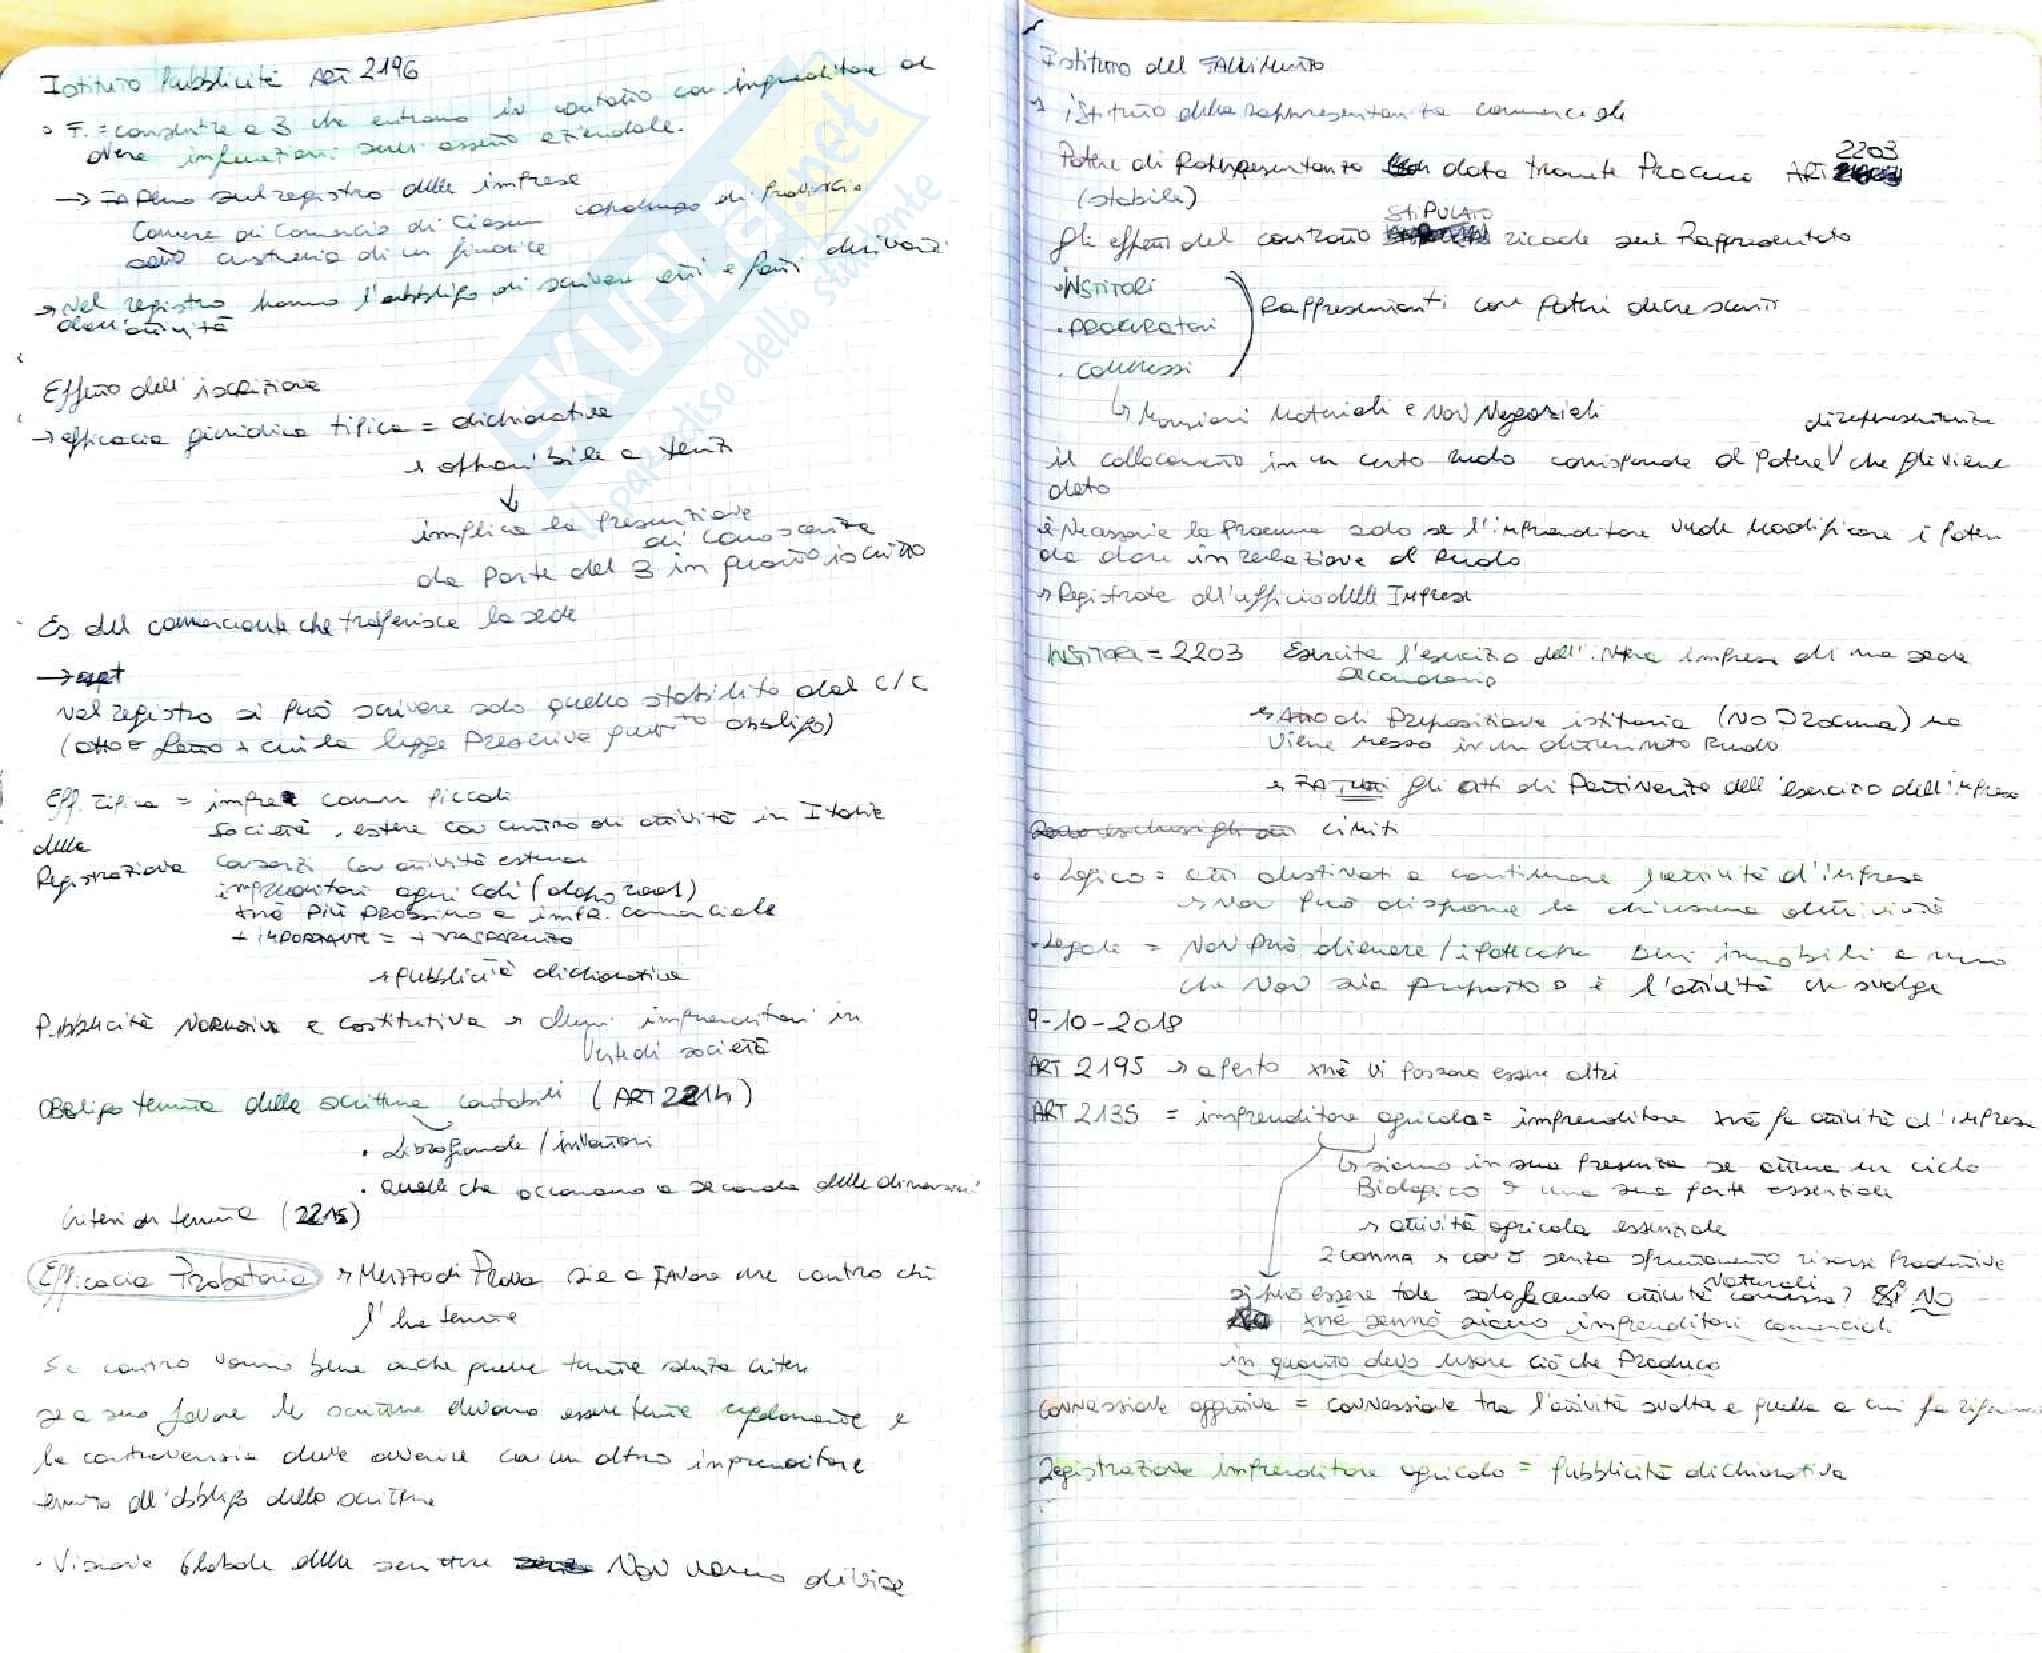 Istituto Pubblicità ART 2196
F. = consentire a 3 che entrano in contatto con imprenditore di
avere informazioni sull'assetto aziendale.
→ sul registro delle imprese
Camera di Comercio di Ciascun capoluogo di Provincia
sotto custodia di un giudice
Nel registro hanno l'obbligo di scrivere atti e fatti derivanti
dall'attività
Effetto dell'iscrizione
→ efficacia giuridica tipica = dichiarativa
opponibile a terzi
↓
implica la Presunzione
di conoscenza
da parte del 3 in quanto iscritto
Es del commerciante che trasferisce la sede
Nel registro si può scrivere solo quello stabilito dal C/C
(atto o fatto x cui la legge Prescriva questo obbligo)
Eff. tipica = impre comm piccoli
della società, estere con centro di attività in Italia
Registrazione consorzi con attività esterna
imprenditori agricoli (dopo 2001)
xkè più prossimo a impr. comerciale
+ IMPORTANTE = + TRASPARENZA
pubblicità dichiarativa
Pubblicità Normativa e costitutiva imprenditori in
Veste di società
OBBligo tenuta delle scritture contabili (ART 2214)
• Libro giornale / inventari
• quelle che occorrono a seconda delle dimensioni
Criteri di tenuta (2215)
Efficacia Probatoria Mezzo di Prova sia a FAVORE che contro chi
l'ha tenute
Se contro vanno bene anche quelle tenute senza criteri
se a suo favore le scritture devono essere tenute regolarmente e
la controversia deve avvenire con un altro imprenditore
tenuto all'obbligo delle scritture
• Visione Globale delle scritture NON vanno divise
Istituto del FALLIMENTO
istituto della rappresentanza commerciale
Potere di Rappresentanza dato tramite Procura ART 2203
(stabile)
Gli effetti del contratto STIPULATO ricade sul Rappresentato
• INSTITORI
• PROCURATORI
• COMMESSI
Rappresentanti con poteri decrescenti
Mansioni Materiali e NON Negoziali
il collocamento in un certo ruolo corrisponde al potere V di rappresentanza che gli viene
dato
è Necessaria la Procura solo se l'imprenditore vuole modificare i poteri
da dare in relazione al Ruolo
Registrate all'ufficio delle Imprese
INSTITORI = 2203 Esercita l'esercizio dell'intera impresa di una sede
secondaria
Atto di Preposizione istitoria (NO Procura) ma
Viene messo in un determinato Ruolo
FA TUTTI gli atti di Pertinenza dell'esercizio dell'impresa
limiti
• Logico = atti destinati a continuare l'attività d'impresa
NON può disporre la chiusura dell'attività
• Legale = NON può alienare / ipotecare Beni immobili a meno
che NON sia preposto a è l'attività che svolge
9-10-2018
ART 2195 aperto xkè vi possono essere altri
ART 2135 = imprenditore agricolo = imprenditore xkè fa attività d'impresa
siamo in sua Presenza se attua un ciclo
Biologico o una sua parte essenziale
attività agricola essenziale
2 comma con o senza sfruttamento risorse Produttive
Naturali
si può essere tale solo facendo attività connessa? NO
xkè sennò siamo imprenditori comerciali
in quanto devo usare ciò che Produco
Connessione oggettiva = connessione tra l'attività svolta e quella a cui fa riferim
Registrazione imprenditore agricolo = pubblicità dichiarativa
SKUOLA.net
il paradiso dello studente